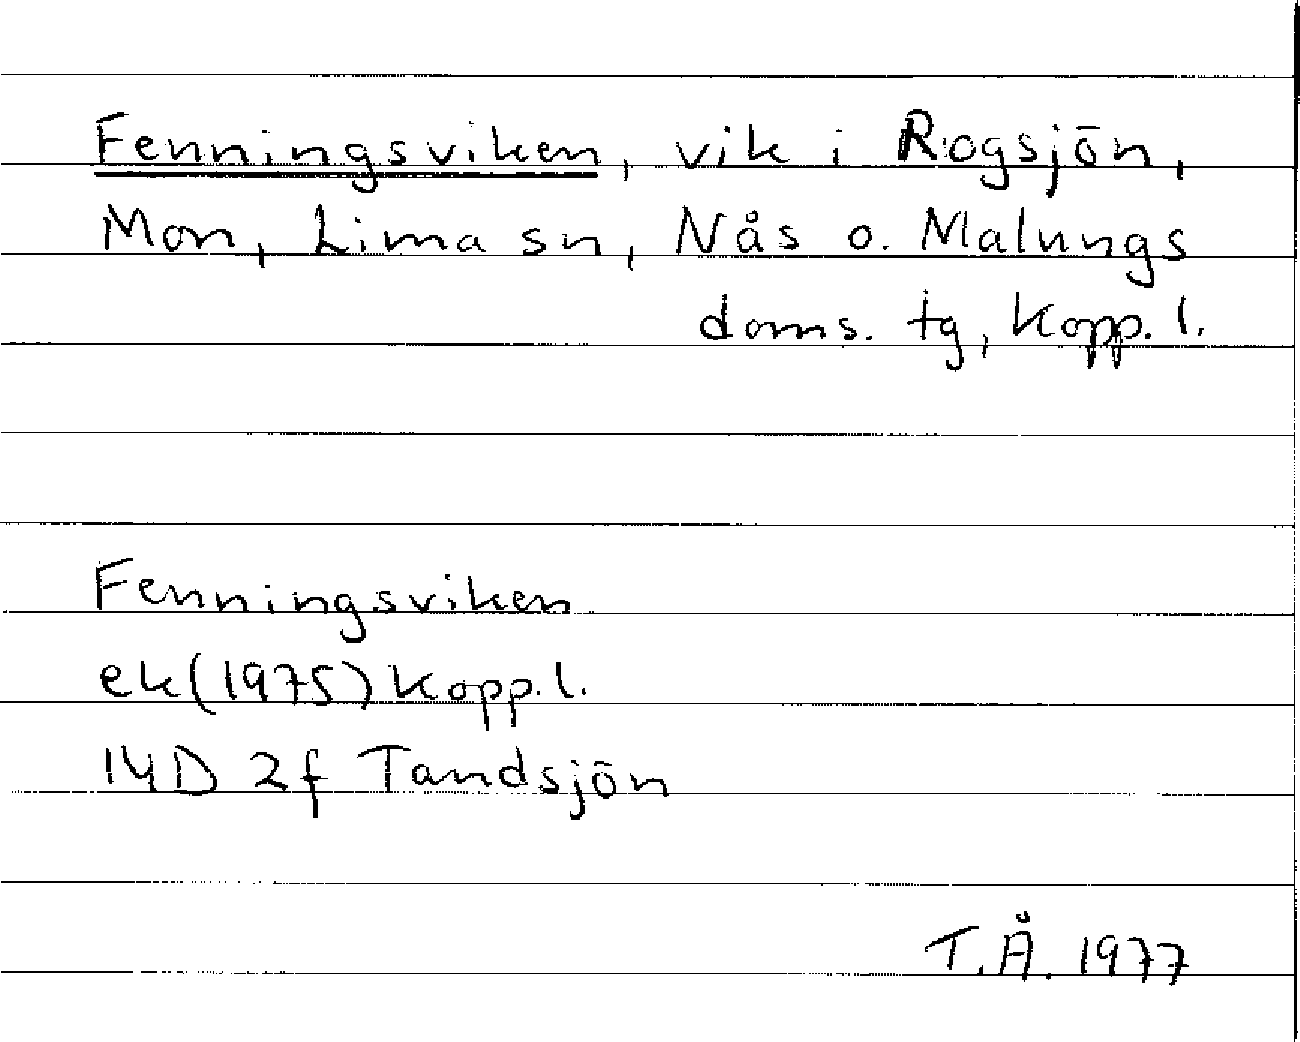 Fenningsviken, vik i Rogsjön,
Mon, Lima sn, Nås o. Malungs
doms. tg, Kopp. l.
Fenningsviken
ek(1975) Kopp. l.
14D 2f Tandsjön
T.Å. 1977